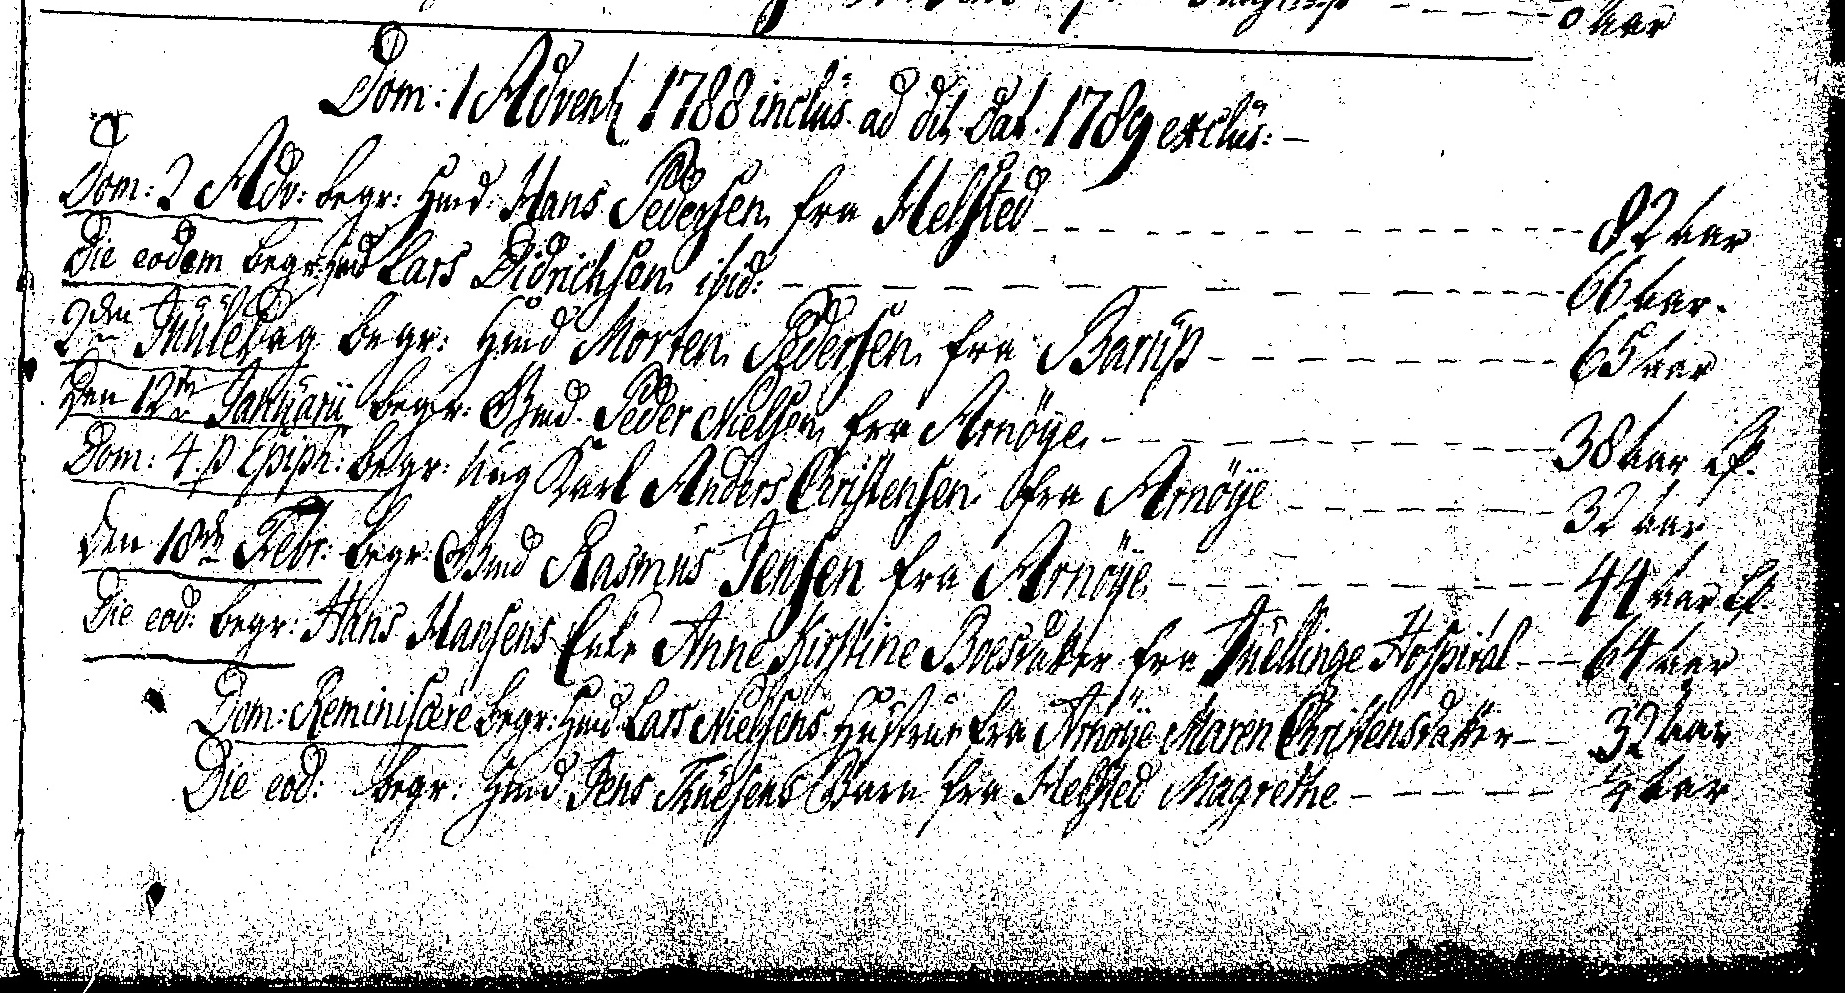 aar
Dom: 1 Advent 1788 inclus. ad dit Dat. 1789 exclus: -
Dom: 2 Adv: begr: Hmd: Hans Pedersen fra Helsted 82 aar
Die eodem begr: Hmd Lars Didrichsen ibid: 66 aar.
2den Juledag begr: Hmd Morten Pedersen fra Barup 65 aar
Den 12te Januarii begr: Gmd. Peder Nielsen fra Arnøÿe 38 aar
Dom: 4 p Epiph: begr: Ung Karl Anders Christensen fra Arnøÿe 32 aar
Den 18de Febr: begr: Gmd Rasmus Jensen fra Arnøÿe 44 aar
Die eod: begr: Hans Hansens Enke Anne Kirstine Boesdatter fra Hospital 64 aar
Dom: Reminiscere begr: Hmd Lars Nielsens Hustrue fra Arnøÿe Maren Christensdatter 32 aar
Die eod: begr: Hmd Jens Truelsens Barn fra Helsted Magrethe 1/4 aar